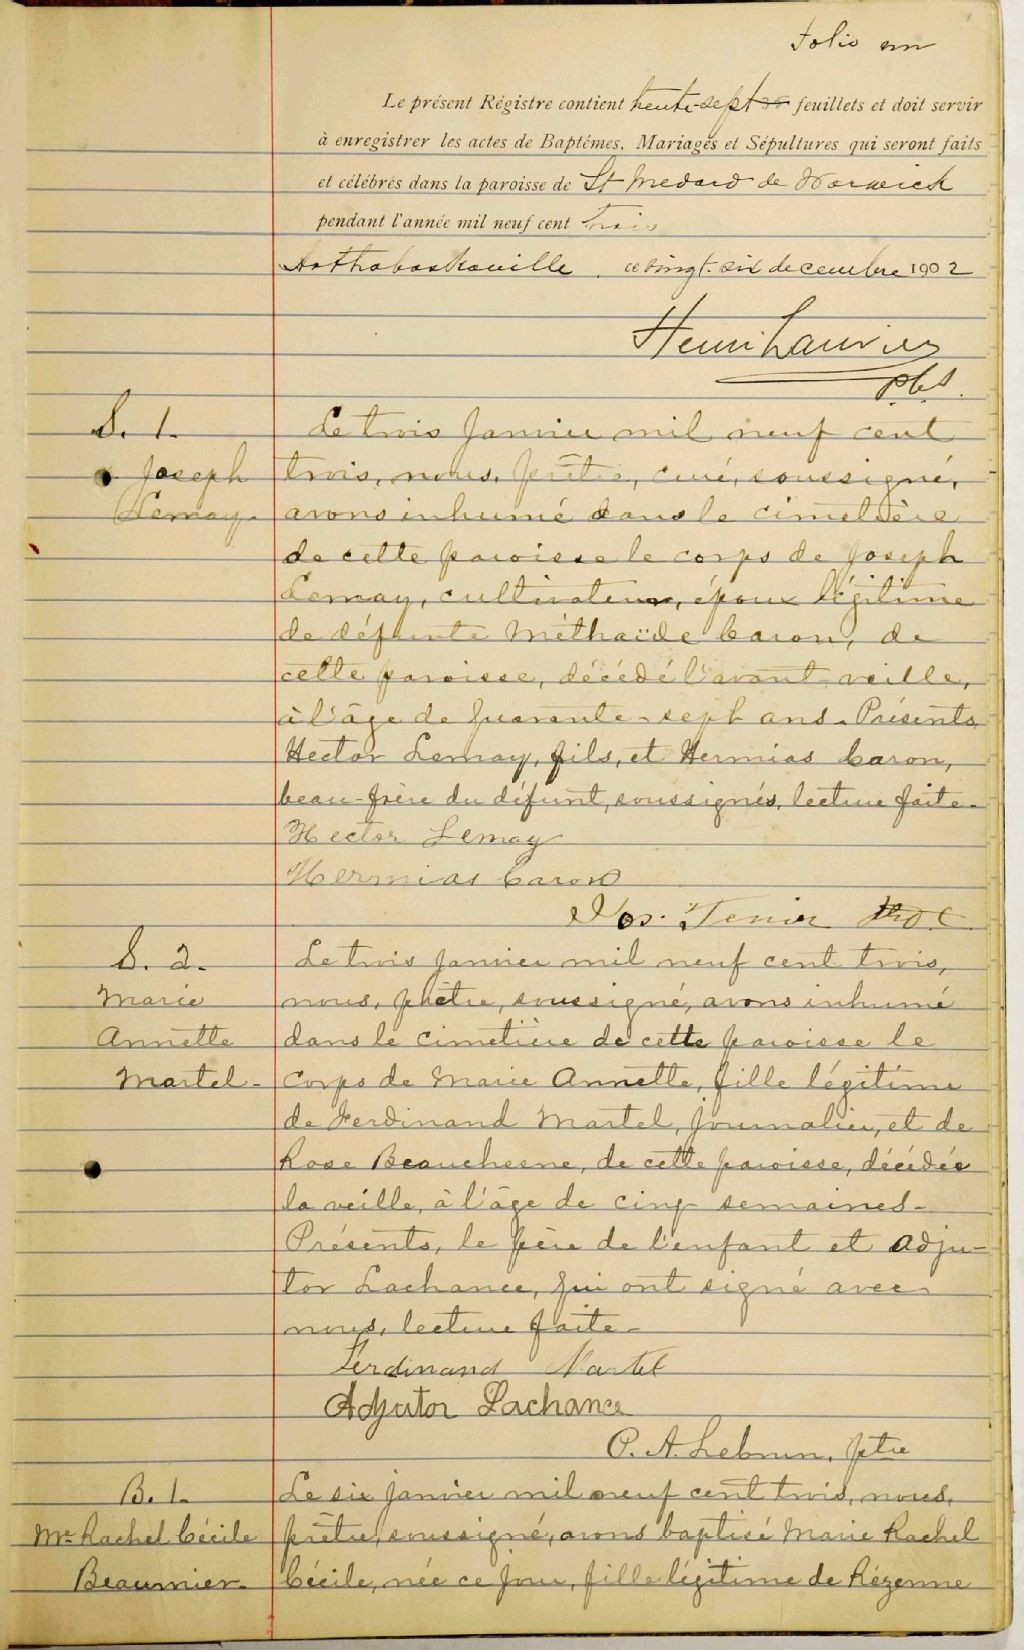 Folio un
Le présent Régistre contient trente-sept feuillets et doit servir
à enregistrer les actes de Baptêmes, Mariages et Sépultures qui seront faits
et célébrés dans la paroisse de St Medard de Warwick
pendant l'année mil neuf cent trois
Arthabaskaville, ce vingt-six decembre 1902
Henri Laurier
P.C.S.
S. 1. Le trois Janvier mil neuf cent
Joseph trois, nous, prêtre, curé, soussigné,
Lemay. avons inhumé dans le cimetière
de cette paroisse le corps de Joseph
Lemay, cultivateur, époux légitime
de défunte Méthaïde Caron, de
cette paroisse, décédé l'avant-veille,
à l'âge de quarante-sept ans. Présents
Hector Lemay, fils, et Hermias Caron,
beau-frère du défunt, soussignés, lecture faite.
Hector Lemay
Hermias Caron
Jos. Tessier
S. 2. Le trois janvier mil neuf cent trois,
Marie nous, prêtre, soussigné, avons inhumé
Annette dans le cimetière de cette paroisse le
Martel- corps de Marie Annette, fille légitime
de Ferdinand Martel, journalier, et de
Rose Beauchesne, de cette paroisse, décédée
la veille, à l'âge de cinq semaines-
Présents, le père de l'enfant et Adju-
tor Lachance, qui ont signé avec
nous, lecture faite-
Ferdinand Martel
Adjutor Lachance
P. A. Lebrun, ptre
B. 1. Le six janvier mil neuf cent trois, nous,
Mie Rachel Cécile prêtre, soussigné, avons baptisé Marie Rachel
Beaumier- Cécile, née ce jour, fille légitime de Rézenne